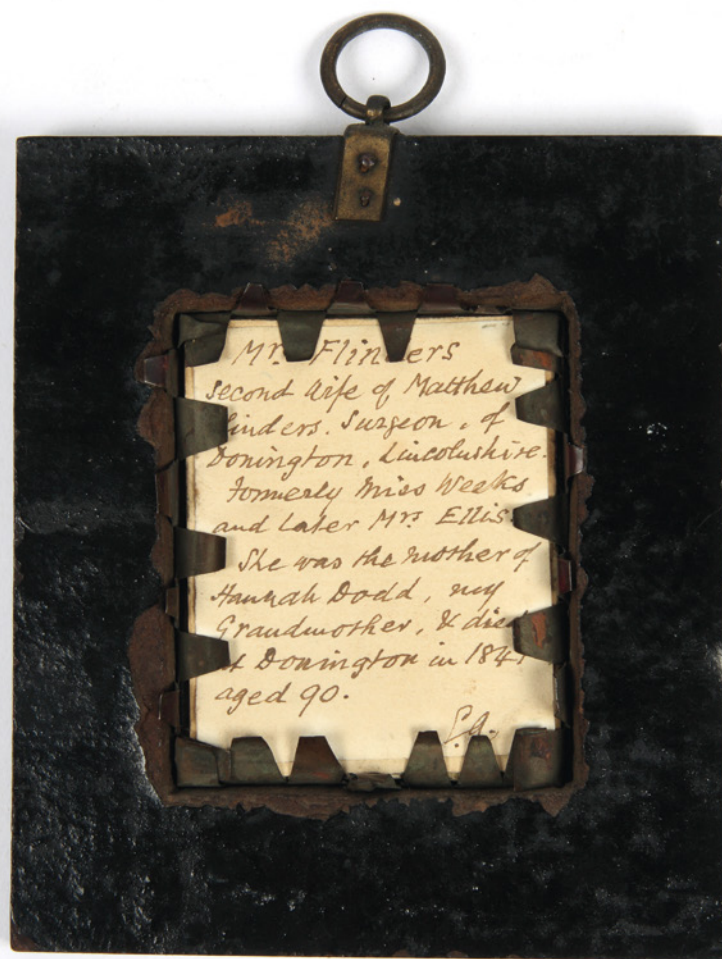 Mrs. Flinders
Second Wife of Matthew
Flinders. Surgeon, of
Donington, Lincolnshire.
Formerly Miss Weeks
and later Mrs Ellis.
She was the mother of
Hannah Dodd, my
Grandmother, & died
at Donington in 184
aged 90.